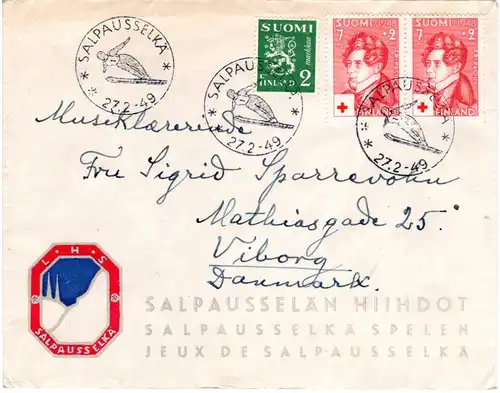 SALPAUSSELKA
27.2-49
SALPAUSSELKA
27.2-49
SUOMI
markkaa
FINLAND 2
SUOMI 1948
7 +2
FINLAND
SUOMI 1948
7 +2
FINLAND
SALPAUSSELKA
27.2-49
Musiklærerinde
Fru Sigrid Sparrevohn
Mathiasgade 25.
Viborg
Danmark.
L • H • S
SALPAUSSELKÄ
SALPAUSSELÄN HIIHDOT
SALPAUSSELKÄ SPELEN
JEUX DE SALPAUSSELKÄ